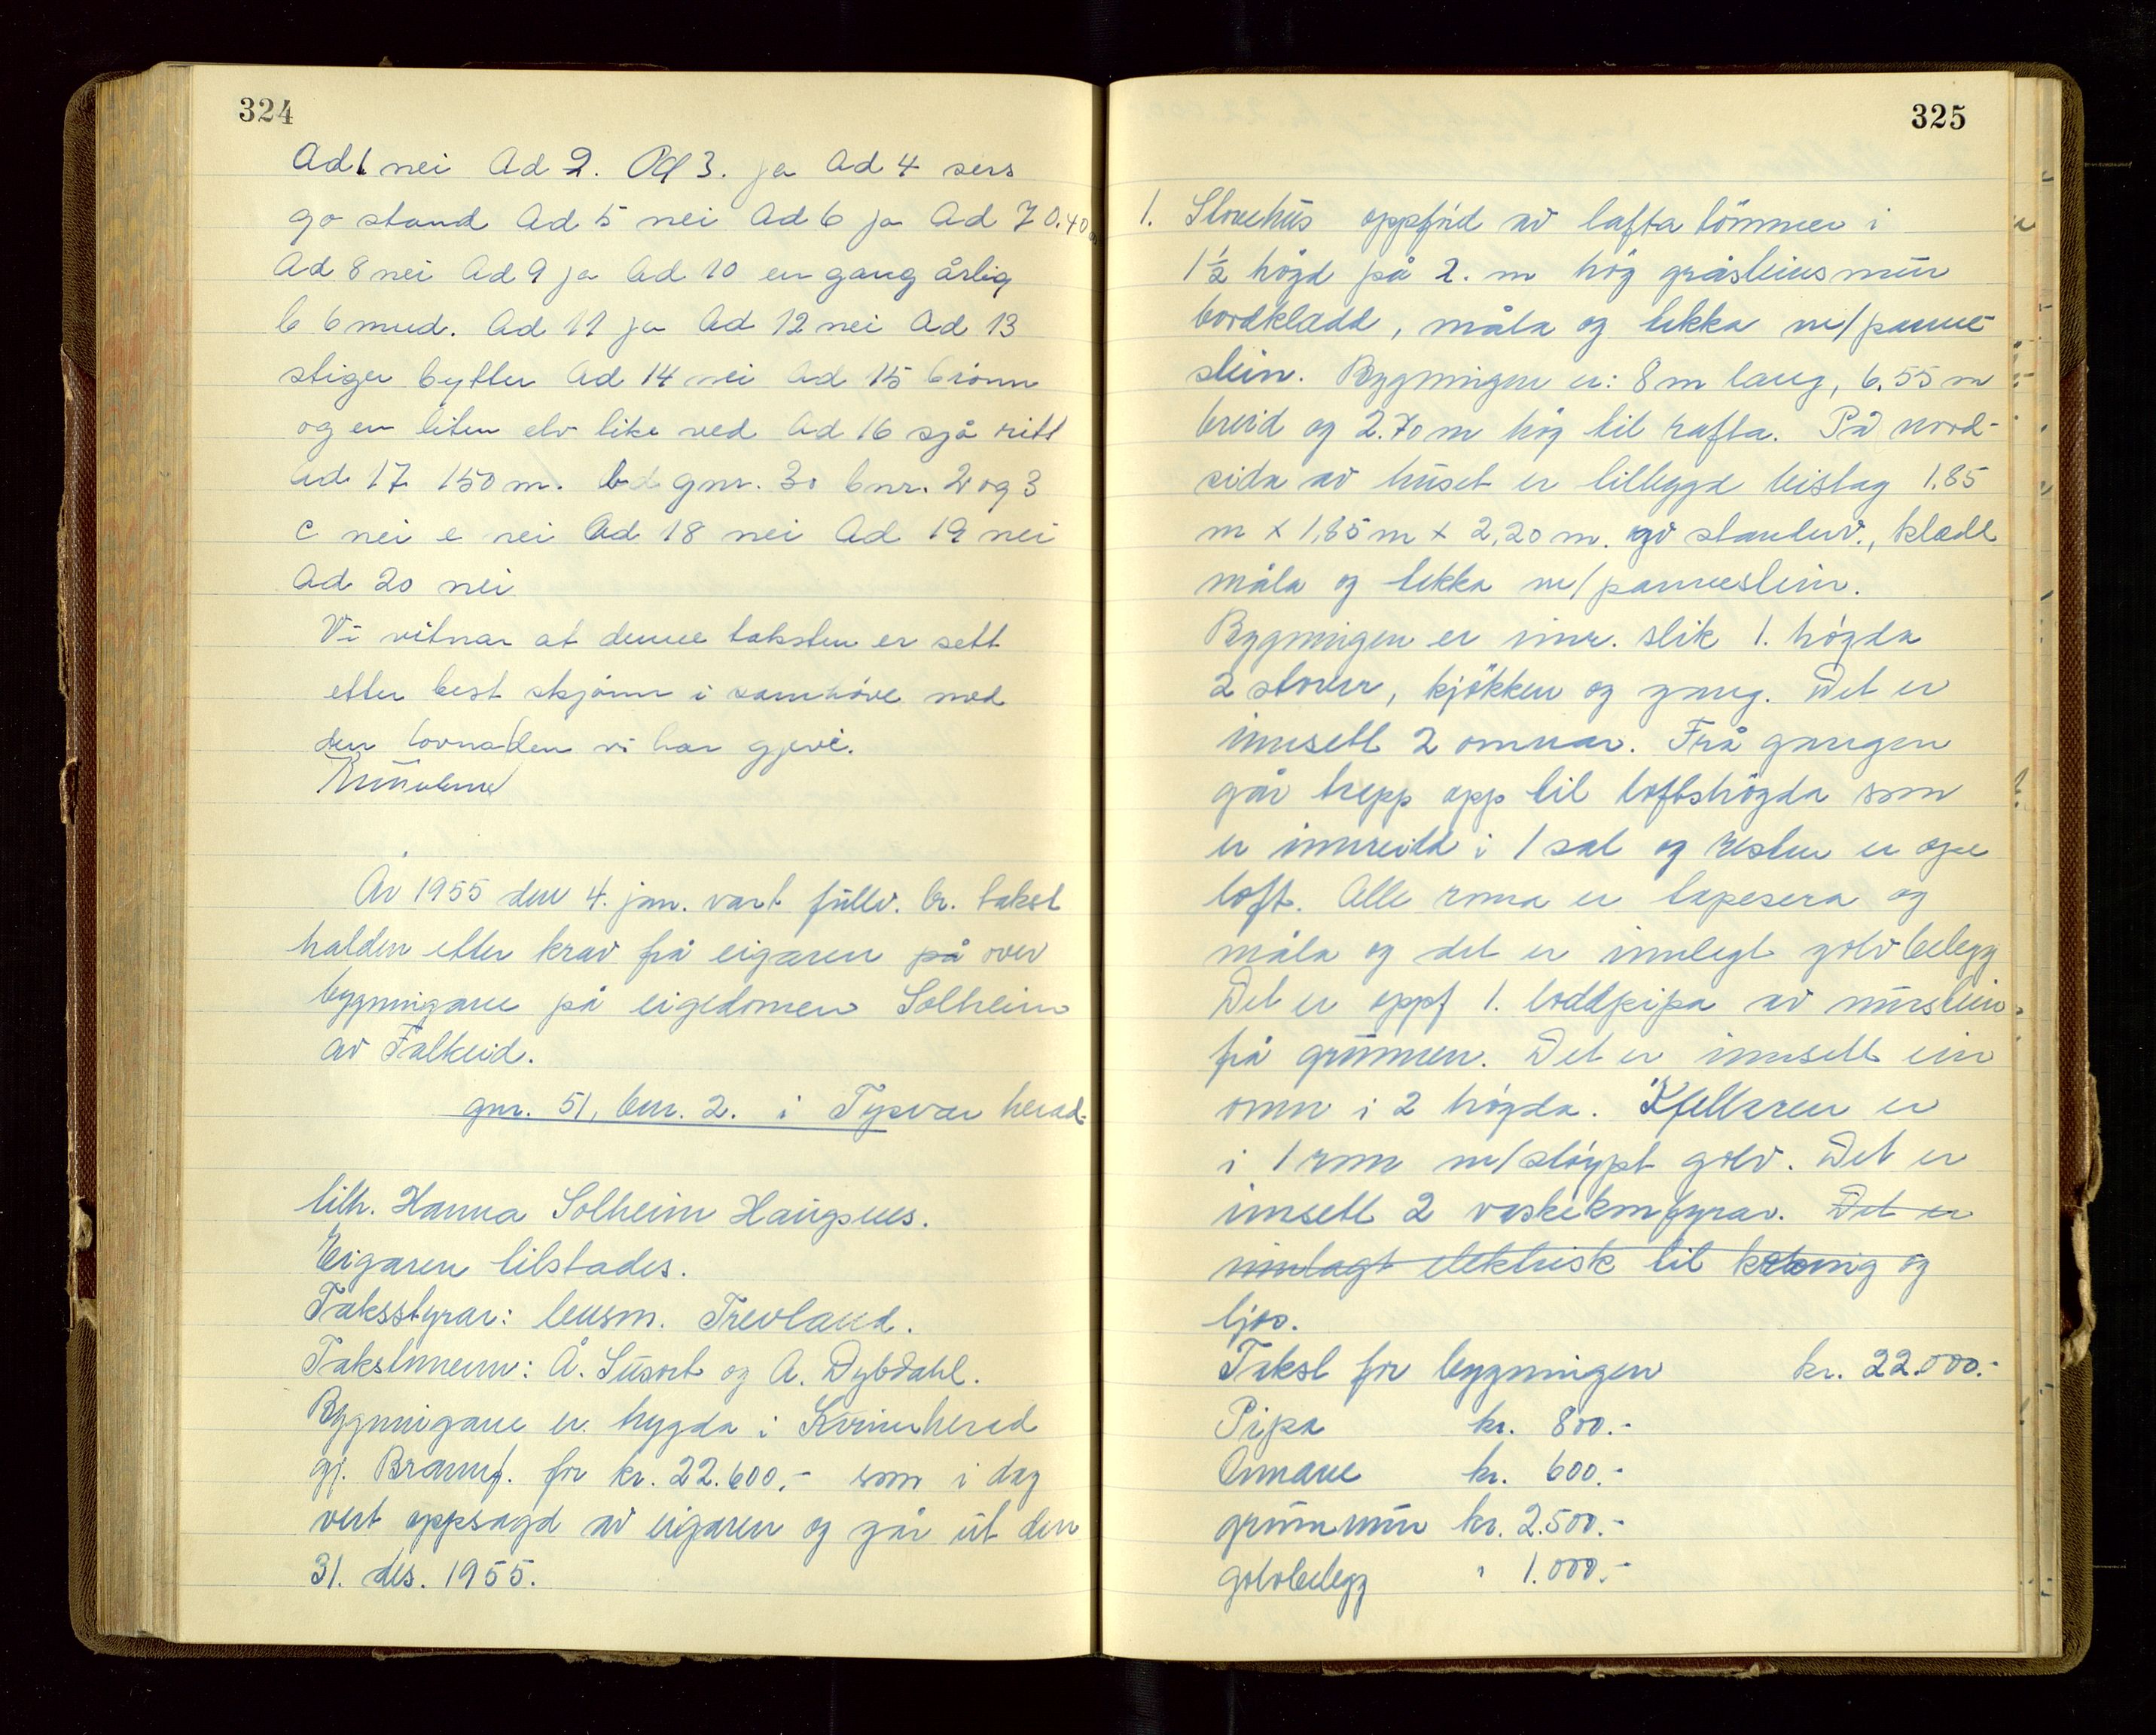 324
Ad 1 nei Ad 2. Ad 3. ja Ad 4 sers
go stand Ad 5 nei Ad 6 ja Ad 7 0.40
Ad 8 nei Ad 9 ja Ad 10 en gang årlig
b 6 mnd. Ad 11 ja Ad 12 nei Ad 13
stiger bytter Ad 14 nei Ad 15 brönn
og en liten elv like ved Ad 16 sjå ritt
Ad 17 150 m. bd gnr. 30 bnr. 2 og 3
c nei e nei Ad 18 nei Ad 19 nei
Ad 20 nei
Vi vitnar at denne taksten er sett
etter best skjönn i samhöve med
den lovnaden vi har gjeve.

År 1955 den 4. jan. vart fullv. br. takst
halden etter krav frå eigaren på over
bygningane på eigedomen Solheim
av Falkeid.
gnr. 51, bnr. 2. i Tysvær herad
tilh. Hanna Solheim Haugsnes.
Eigaren tilstades.
Taksstyrar: lensm. Trevland.
Takstmenn: Å. Susort og A. Dybdahl.
Bygningane er trygda i Kvinnherad
gj. Brannf. for kr. 22.600,- som i dag
vert oppsagd av eigaren og går ut den
31. des. 1955.
325
1. Stovehus oppförd av lafta tömmer i
1½ högd på 2. m hög gråsteinsmur
bordkledd, måla og tekka m/panne-
stein. Bygningen er: 8 m lang, 6.55 m
breid og 2.70 m hög til rafta. På nord-
sida av huset er tilbygd bislag 1.85
m x 1,85 m x 2,20 m. av stenderv., kledt
måla og tekka m/pannestein.
Bygningen er innr. slik 1. högda
2 stover, kjökken og gang. Det er
innsett 2 omnar. Frå gangen
går trepp opp til loftshögda som
er innreidd i 1 sal og resten er ope
loft. Alle roma er tapesera og
måla og det er innlegt golvbelegg
Det er oppf 1. loddpipa av murstein
frå grunnen. Det er innsett ein
omn i 2 högda. Kjellaren er
i 1 rom m/stöypt golv. Det er
innsett 2 vaskekomfyrar. Det er
innlagt elektrisk til koking og
ljos.
Takst for bygningen kr. 22.000.-
Pipa kr. 800.-
Omnane kr. 600.-
grunnmur kr. 2.500.-
golvbelegg " 1.000.-